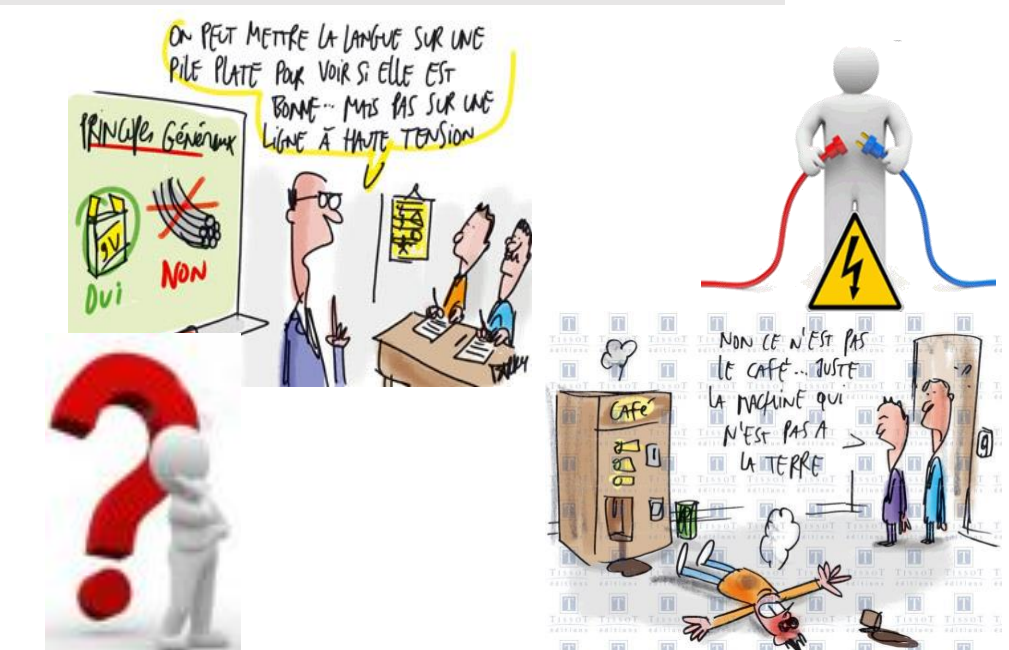 ON PEUT METTRE LA LANGUE SUR UNE
PILE PLATE POUR VOIR SI ELLE EST
BONNE... MAIS PAS SUR UNE
LIGNE À HAUTE TENSION
PRINCIPES GÉNÉRAUX
9V
OUI
NON
NON CE N'EST PAS
LE CAFÉ... JUSTE
LA MACHINE QUI
N'EST PAS A
LA TERRE
CAFÉ
TISSOT
éditions